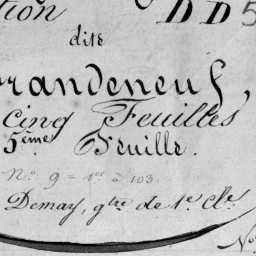 tion D D 5
dite
randeneuf,
cinq Feuilles
5ème Feuille.
No. 9 = 1er à 103
Demay, gtre de 1e Cle
No